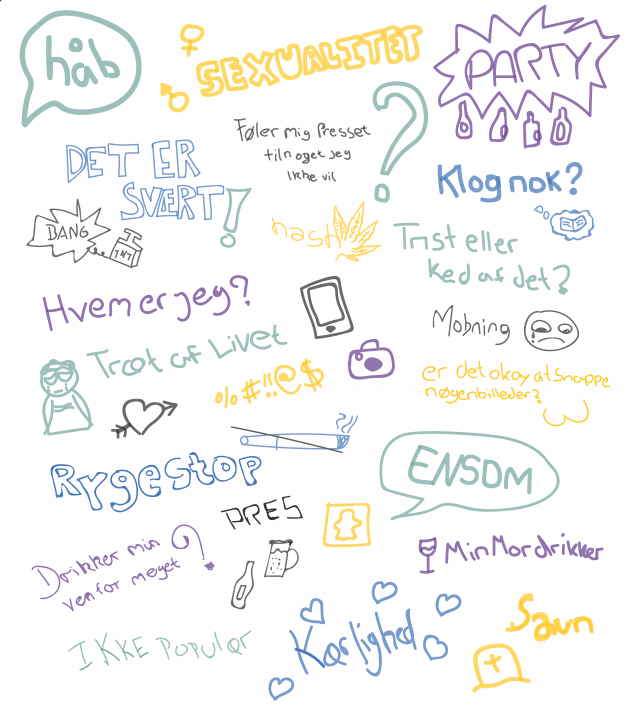 håb
SEXUALITET
PARTY
Føler mig Presset
til noget jeg
ikke vil
DET ER
SVÆRT!
?
Klog nok?
BANG
TNT
hash
Trist eller
ked af det?
Hvem er jeg?
Mobning
Træt af Livet
%#!!@$
er det okay at Snappe
nøgenbilleder?
Rygestop
ENSOM
PRES
Drikker min
ven for meget?
Min Mor drikker
IKKE Populær
Kærlighed
Savn